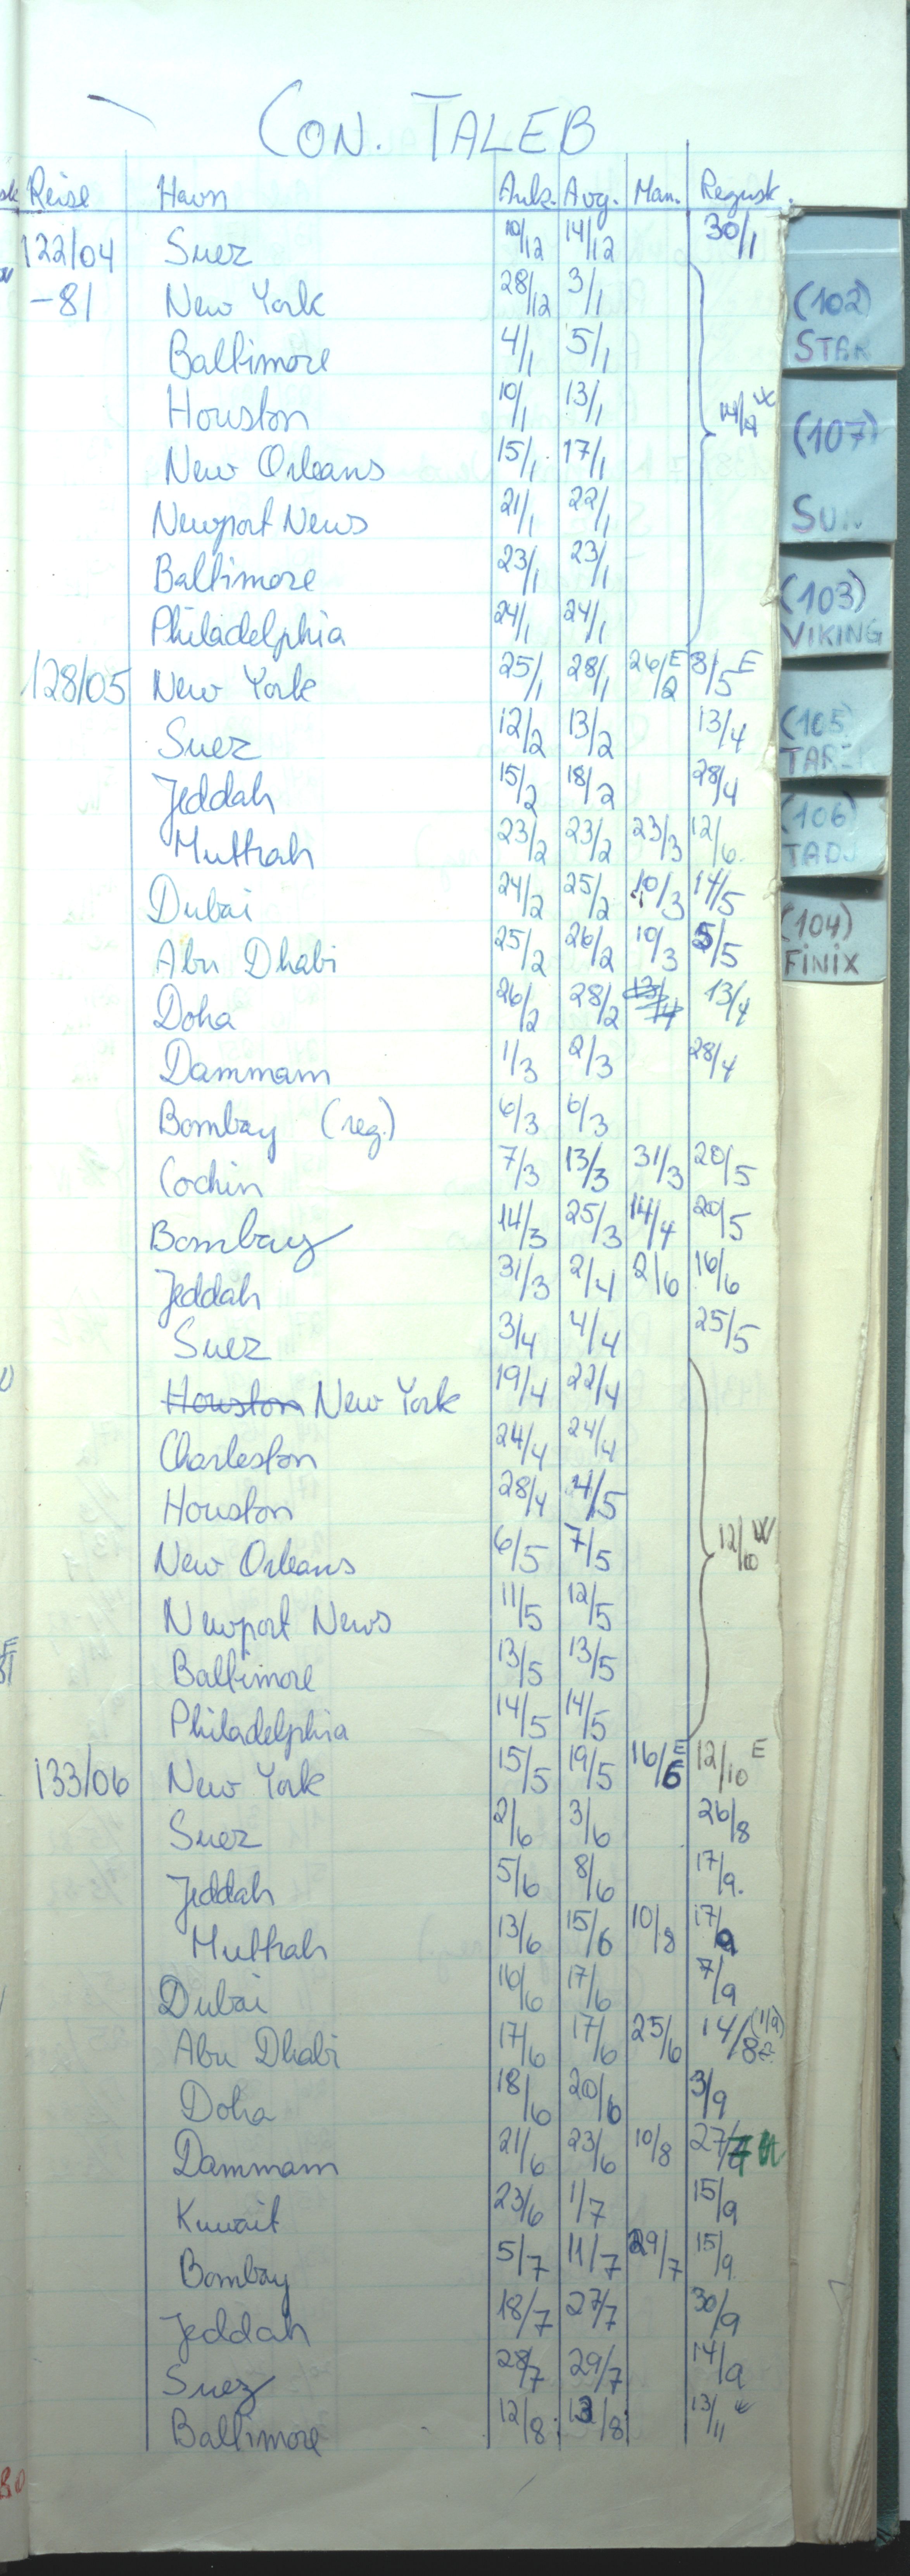 CON. TALEB
Reise Havn Ank. Avg. Man. Regnsk.
122/04 Suez 10/12 14/12 30/1
-81 New York 28/12 3/1
Baltimore 4/1 5/1
Houston 10/1 13/1
New Orleans 15/1 17/1
Newport News 21/1 22/1
Baltimore 23/1 23/1
Philadelphia 24/1 24/1
128/05 New York 25/1 28/1 26/2 E 8/5 E
Suez 12/2 13/2 13/4
Jeddah 15/2 18/2 28/4
Muttrah 23/2 23/2 23/3 12/6
Dubai 24/2 25/2 10/3 14/5
Abu Dhabi 25/2 26/2 10/3 5/5
Doha 26/2 28/2 13/4 13/4
Dammam 1/3 2/3 28/4
Bombay (reg.) 6/3 6/3
Cochin 7/3 13/3 31/3 20/5
Bombay 14/3 25/3 14/4 20/5
Jeddah 31/3 2/4 2/6 16/6
Suez 3/4 4/4 25/5
Houston New York 19/4 22/4
Charleston 24/4 24/4
Houston 28/4 4/5
New Orleans 6/5 7/5 12/10 W
Newport News 11/5 12/5
Baltimore 13/5 13/5
Philadelphia 14/5 14/5
133/06 New York 15/5 19/5 16/6 E 12/10 E
Suez 2/6 3/6 26/8
Jeddah 5/6 8/6 17/9.
Muttrah 13/6 15/6 10/8 17/9
Dubai 16/6 17/6 7/9
Abu Dhabi 17/6 17/6 25/6 14/8
Doha 18/6 20/6 3/9
Dammam 21/6 23/6 10/8
Kuwait 23/6 1/7 15/9
Bombay 5/7 11/7 29/7 15/9
Jeddah 18/7 27/7 30/9
Suez 28/7 29/7 14/9
Baltimore 12/8 13/8 13/11
(102)
STAR
(107)
SUN
(103)
VIKING
(105)
TAREK
(106)
TADJ
(104)
FINIX